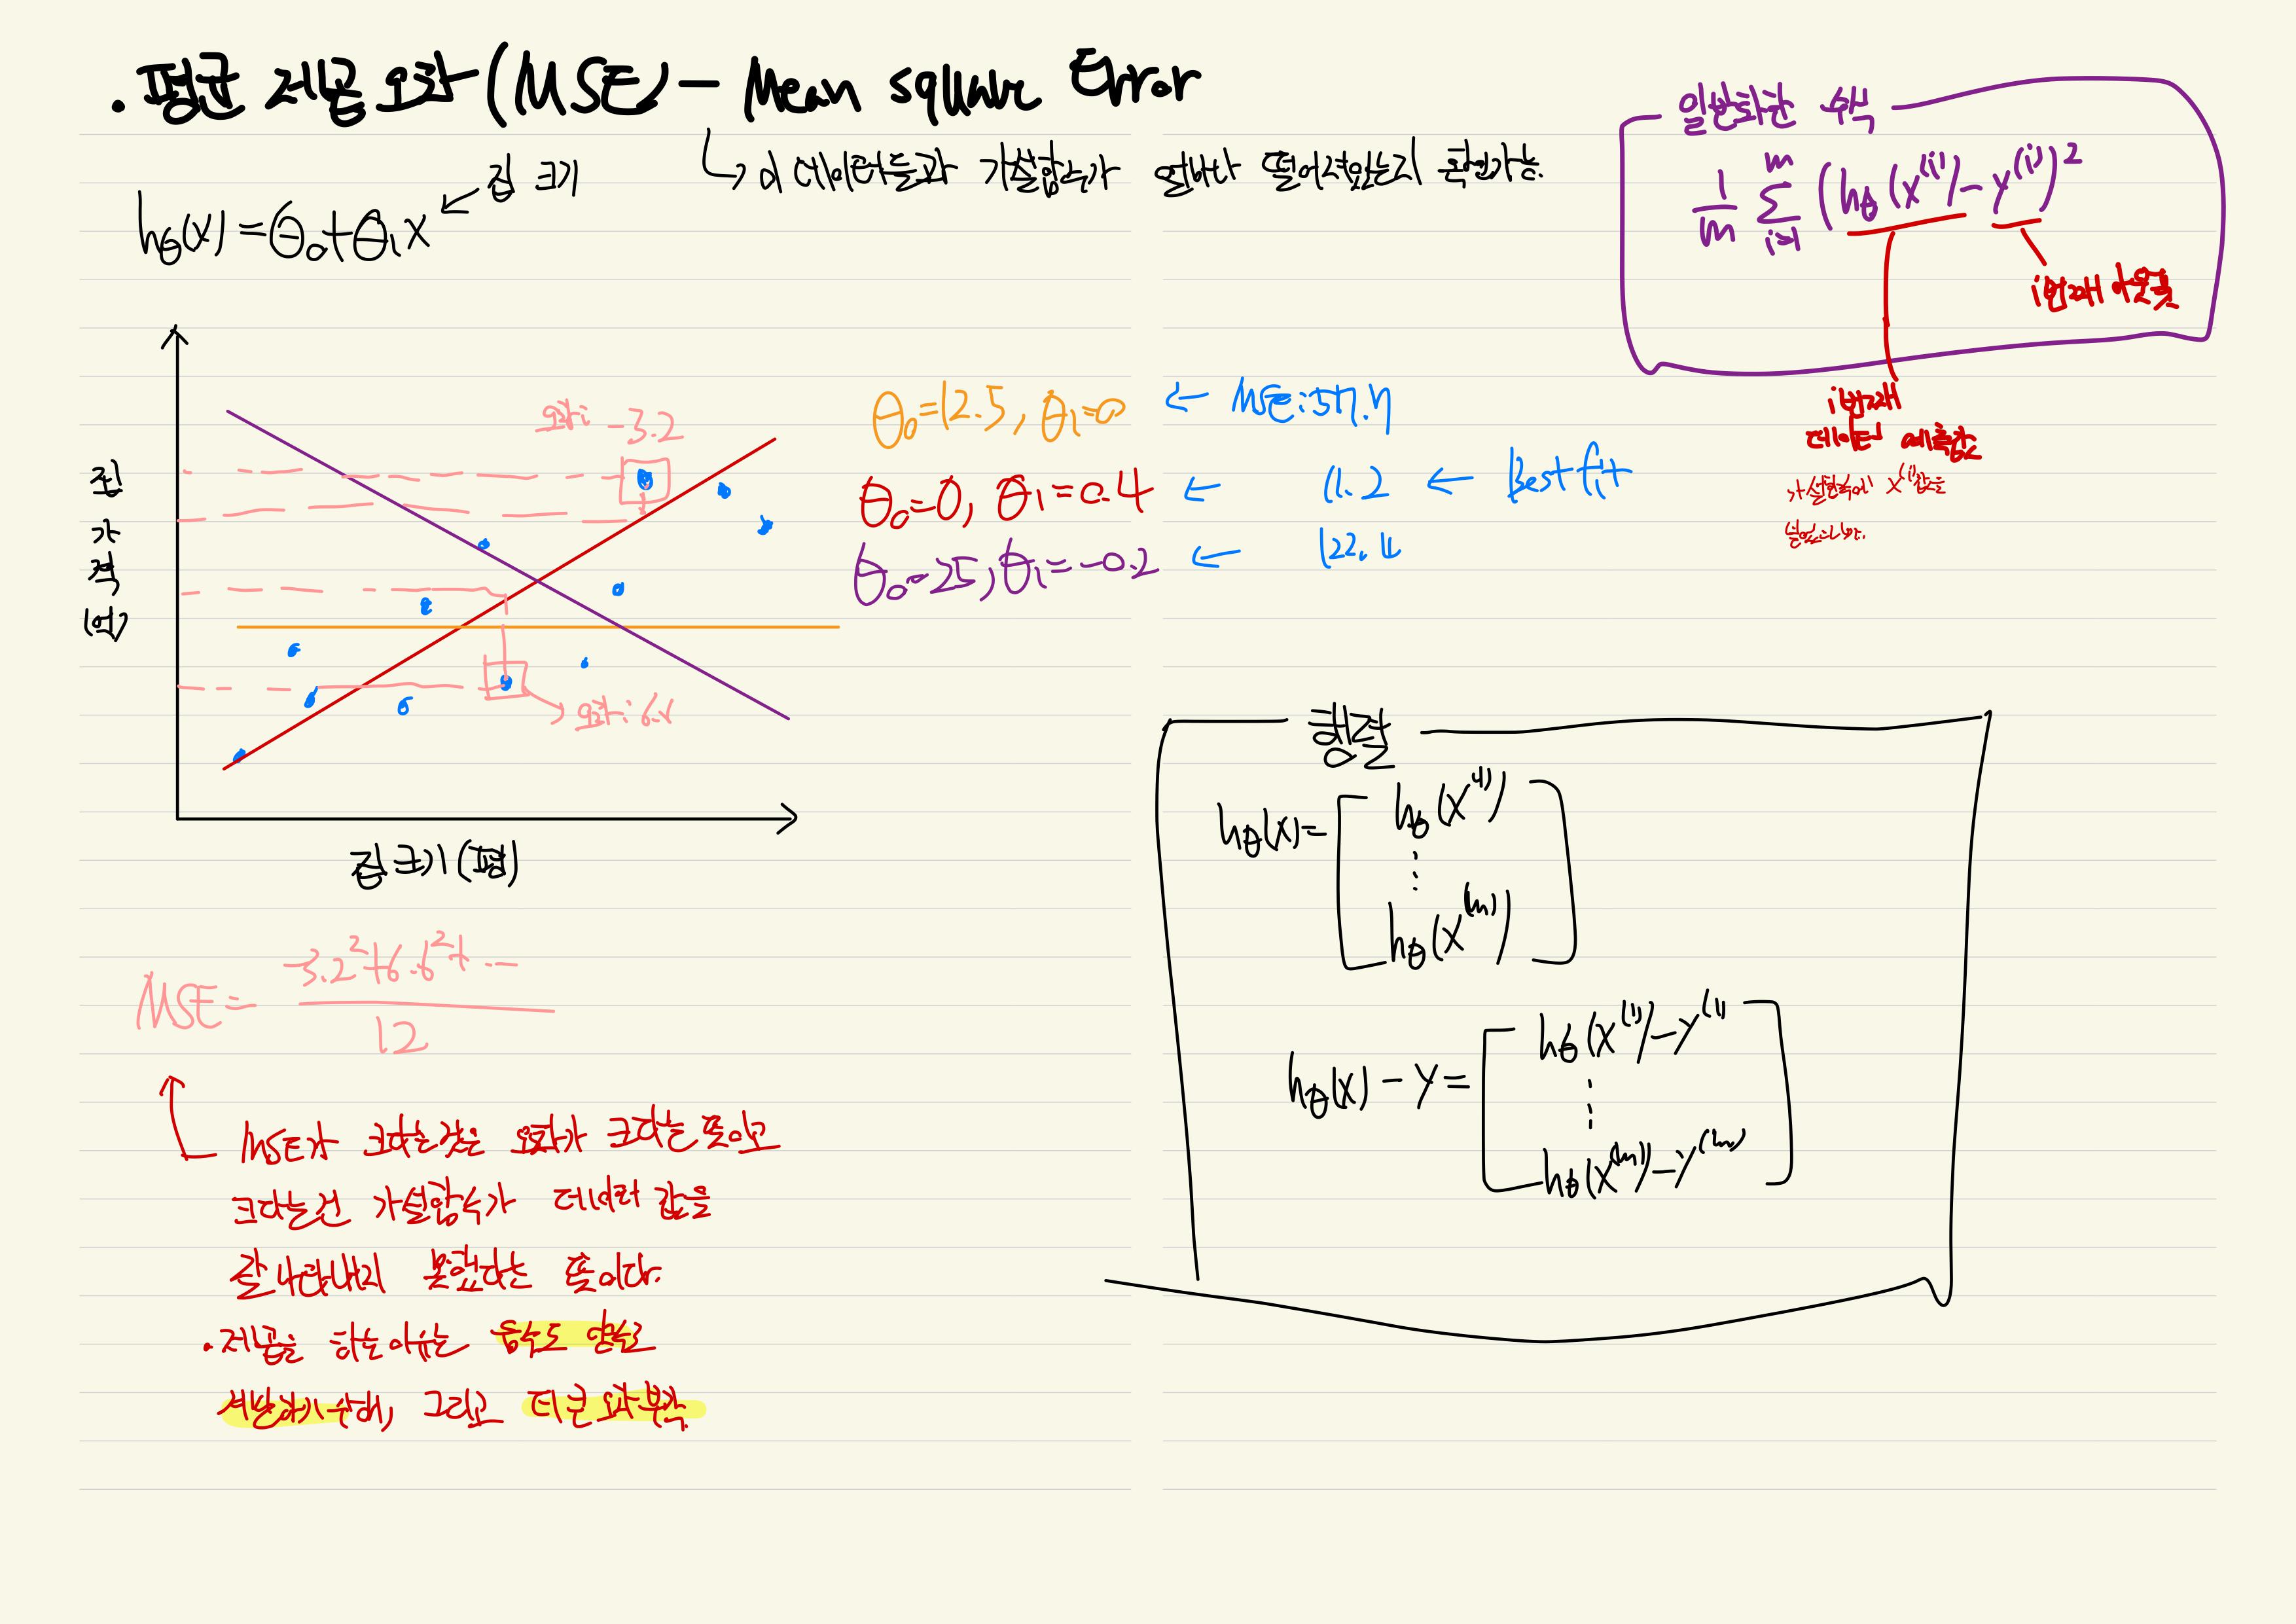 . 평균 제곱 오차 (MSE) - Mean square Error
↳ 이 데이터들과 가설함수가 얼마나 떨어져있는지 확인가능.
hθ(x) = θ₀ + θ₁x ← 집 크기
일반화한 수식
1/m Σ_{i=1}^{m} (hθ(x⁽ⁱ⁾) - y⁽ⁱ⁾)²
i번째 아웃풋
i번째
데이터 예측값
가설함수에 x⁽ⁱ⁾값을
오차: -3.2
θ₀=12.5, θ₁=0 ← MSE:
θ₀=0, θ₁=0.4 ← 11.2 ← Best fit
θ₀=25, θ₁=-0.2 ← 122.4
집
가
격
(억)
오차:
집 크기 (평)
MSE = (-3.2²+6.6²+ ...) / 12
MSE가 크다는 것은 오차가 크다는 뜻이고
크다는건 가설함수가 데이터 값을
잘 나타내지 못했다는 뜻이다.
. 제곱을 하는 이유는 음수도 양수로
계산하기 위해, 그리고 더 큰 오차 부각.
행렬
hθ(x) = [ hθ(x⁽¹⁾)
⋮
hθ(x⁽ᵐ⁾) ]
hθ(x) - y = [ hθ(x⁽¹⁾) - y⁽¹⁾
⋮
hθ(x⁽ᵐ⁾) - y⁽ᵐ⁾ ]